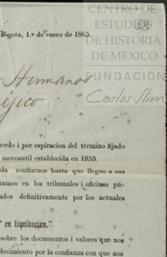 CENTRO DE
ESTUDIOS
DE HISTORIA
DE MEXICO
FUNDACIÓN
Carlos Slim
Bogotá, 1.º de enero de 1865.
Hermanos
Méjico
cuerdo i por espiracion del término fijado
mercantil establecida en 1855.
da confiarnos hasta que llegue a sua
amos en los tribunales i oficinas pú-
tados definitivamente por los actuales
en liquidacion.
sobre los documentos i valores que nos
decimiento por la confianza con que nos